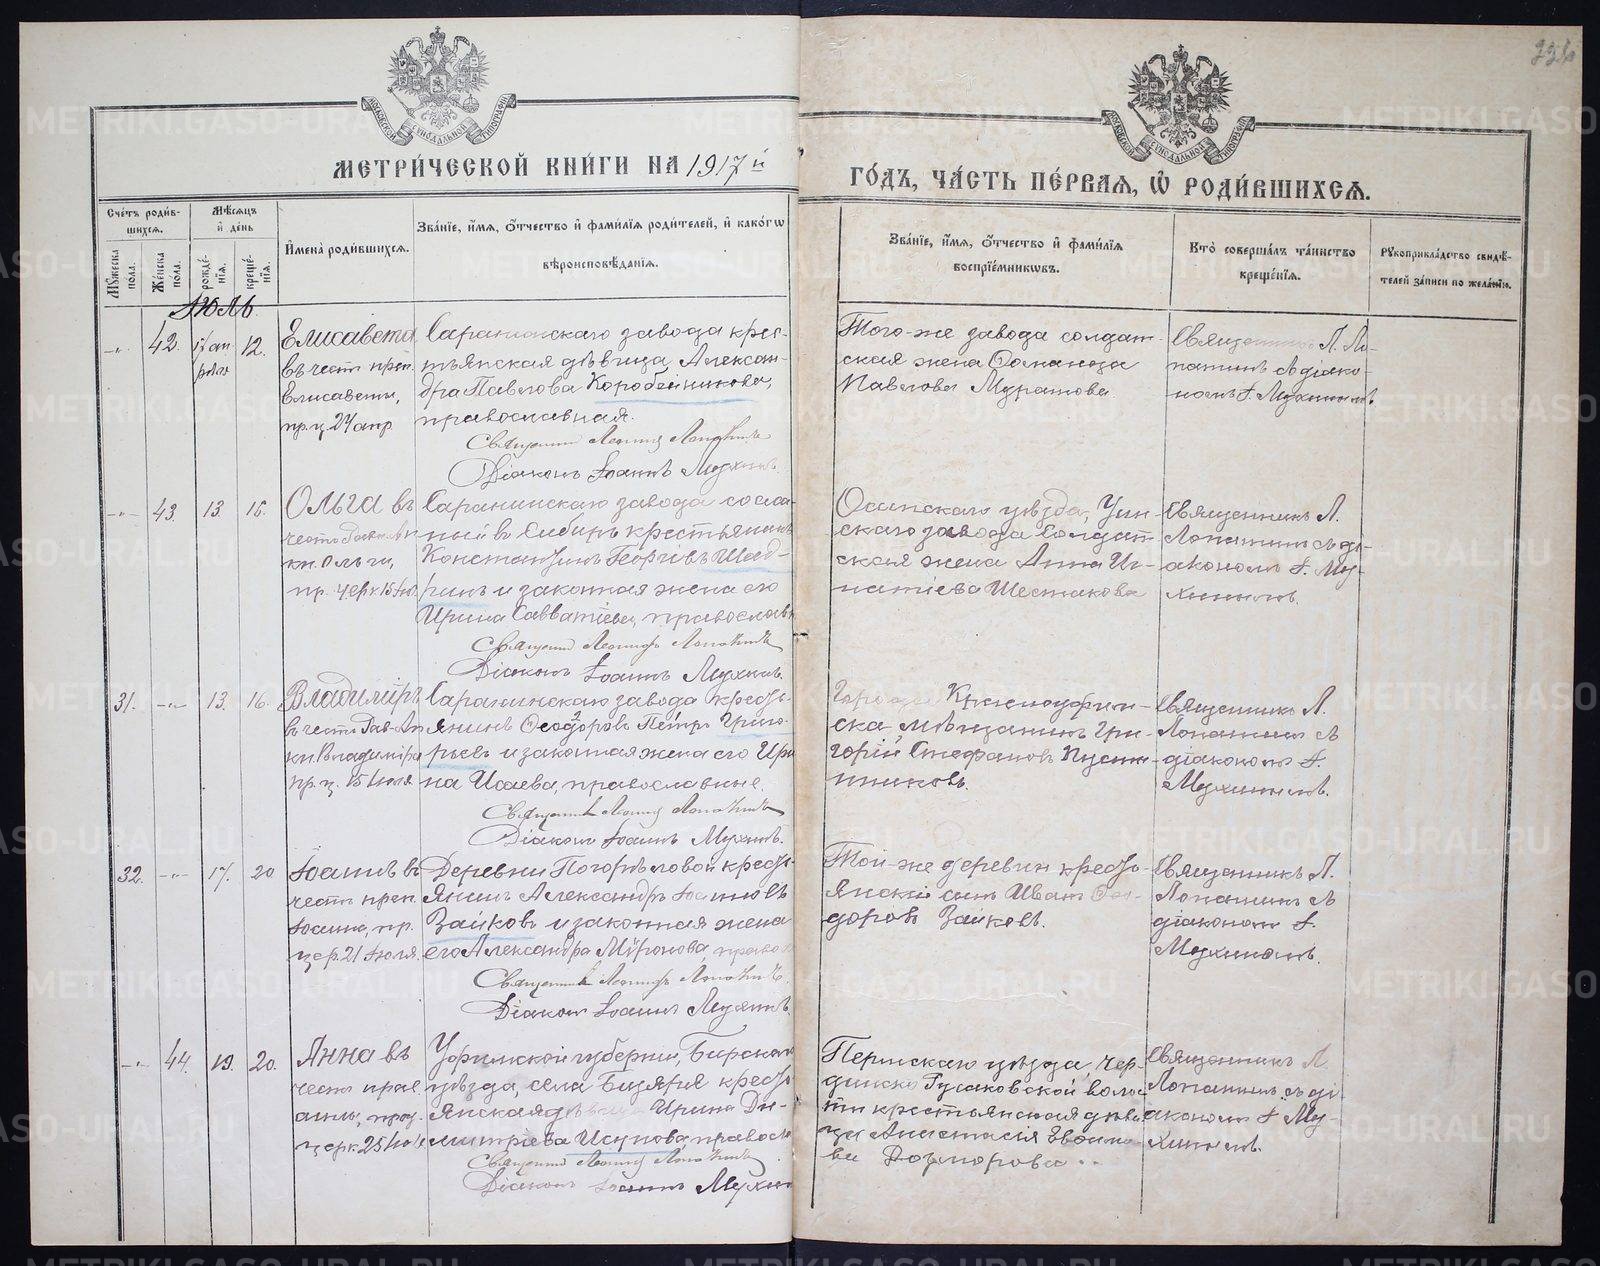 224
МОСКОВСКОЙ СѴНОДАЛЬНОЙ ТИПОГРАФІИ
МОСКОВСКОЙ СѴНОДАЛЬНОЙ ТИПОГРАФІИ
МЕТРИ́ЧЕСКОЙ КНИ́ГИ НА 1917 й
ГО́ДЪ, ЧА́СТЬ ПЕ́РВАЯ, Ѡ҆ РОДИ́ВШИХСЯ.
Сче́тъ роди́в-
шихся.
Мѣ́сяцъ
и҆ де́нь
Му́жеска
по́ла.
Же́нска
по́ла.
рожде́-
нїя.
креще́-
нїя.
И҆мена̀ роди́вшихся.
Зва́нїе, и҆́мя, ѻ҆́тчество и҆ фами́лїя роди́телей, и҆ како́гѡ
вѣроисповѣ́данїя.
Зва́нїе, и҆́мя, ѻ҆́тчество и҆ фами́лїя
воспрїе́мникѡвъ.
Кто̀ соверша́лъ та́инство
креще́нїя.
Рукоприкла́дство свидѣ́-
телей за́писи по жела́нїю.
Іюль
-"- 42. 17 ап
рѣля 12.
Елисавета
въ честь преп.
Елисаветы,
пр. ц. 24 апр
Саранинскаго завода крес-
тьянская дѣвица Алексан-
дра Павлова Коробейникова,
православная.
Священникъ Леонидъ Лопатинъ
Діаконъ Іоаннъ Мухинъ.
Того-же завода солдат-
ская жена
Павлова Муратова.
Священникъ Л. Ло-
патинъ съ діако-
номъ І. Мухинымъ
-"- 43. 13. 16.
Ольга въ
честь
кн. Ольги,
пр. церк. 15 Іюл.
Саранинскаго завода сослан-
ный въ Сибирь крестьянинъ
Константинъ Георгіевъ Шад-
ринъ и законная жена его
Ирина Савватіева, православн
Священникъ Леонидъ Лопатинъ
Діаконъ Іоаннъ Мухинъ.
Осинскаго уѣзда, Уин-
скаго завода солдат-
ская жена Анна Иг-
натіева Шестакова
Священникъ Л.
Лопатинъ съ ді-
акономъ І. Му-
хинымъ.
31. -"- 13. 16.
Владиміръ
въ честь Рав-Ап
кн. Владиміра
пр. ц. 15 Іюля
Саранинскаго завода кресть-
янинъ Ѳеодоровъ Петръ Григо-
рьевъ и законная жена его Ири
на Исаева, православные.
Священникъ Леонидъ Лопатинъ
Діаконъ Іоаннъ Мухинъ.
Города Красноуфим-
ска, мѣщанинъ Гри-
горій Стефановъ Пусты-
нниковъ.
Священникъ Л.
Лопатинъ съ
діакономъ І.
Мухинымъ.
32. -"- 17. 20
Іоаннъ въ
честь преп.
Іоанна, пр.
цер. 21 Іюля.
Деревни Погорѣловой кресть-
янинъ Александръ Іоанновъ
Зайковъ и законная жена
его Александра Миронова, правос
Священникъ Леонидъ Лопатинъ
Діаконъ Іоаннъ Мухинъ.
Той-же деревни кресть-
янскій сынъ Иванъ Ѳео-
доровъ Зайковъ.
Священникъ Л.
Лопатинъ съ
діакономъ І.
Мухинымъ.
-"- 44. 19. 20.
Анна въ
честь прав.
Анны, праз.
церк. 25 Іюля
Уфимской губерніи, Бирскаго
уѣзда, села кресть
янская дѣвица Ирина Ди-
митріева Исупова, правосл
Священникъ Леонидъ Лопатинъ
Діаконъ Іоаннъ Мухин
Пермскаго уѣзда, Чер-
Гусаковской волос
ти крестьянская дѣви
ца Анастасія
ва
Священникъ Л.
Лопатинъ съ ді-
акономъ І. Му-
хинымъ.
METRIKI.GASO-URAL.RU